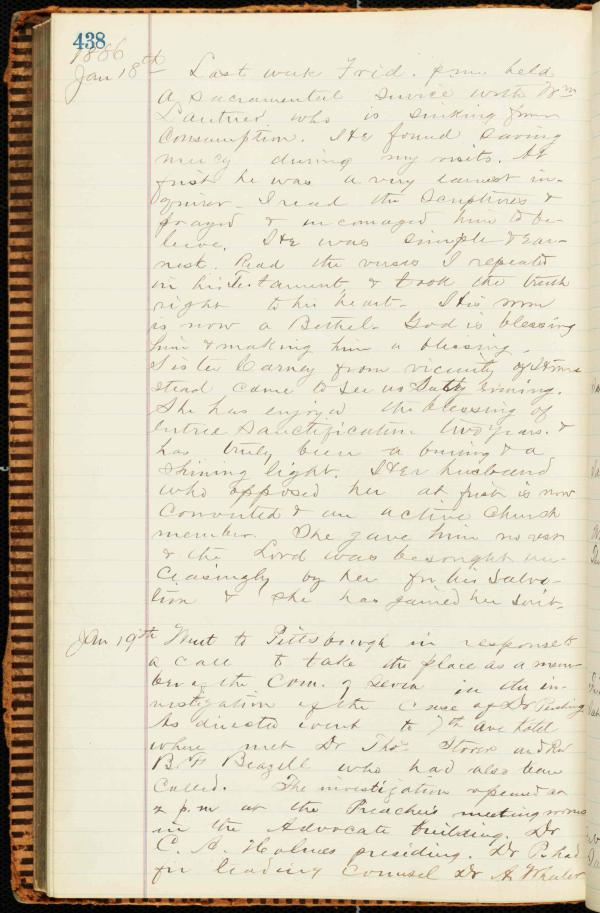 438
1886
Jan 18th Last week Frid. p.m. held
a sacramental service with Wm
who is sinking from
Consumption. He found saving
mercy during my visits. At
first he was a very earnest in-
quirer. I read the Scriptures &
prayed & incouraged him to be-
lieve. He was simple & ear-
nest. Read the verses I repeated
in his Testament, & took the truth
right to his heart. His room
is now a Bethel. God is blessing
him & making him a blessing.
Sister Carney from vicinity of Homs
stead came to see us Satdy evening.
She has enjoyed the blessing of
entire Sanctification two years. &
has truly been a burning & a
shining light. Her husband
who opposed her at first is now
Converted & an active Church
member. She gave him no rest
& the Lord was besought un-
ceasingly by her for his Salva-
tion & she has gained her suit.
Jan 19th Went to Pittsbourgh in response to
a call to take the place as a mem-
ber of the Com. of Seven in the in-
vestigation of the Case of Dr Pershing
As directed went to 7th Ave Hotel
where met Dr Thos. Storer and Rev
B. F. Beazell who had also been
Called. The investigation opened at
2 p.m at the Preachers meeting rooms
in the Advocate building. Dr
C. A. Holmes presiding. Dr P. had
for leading Counsel Dr A. Wheeler